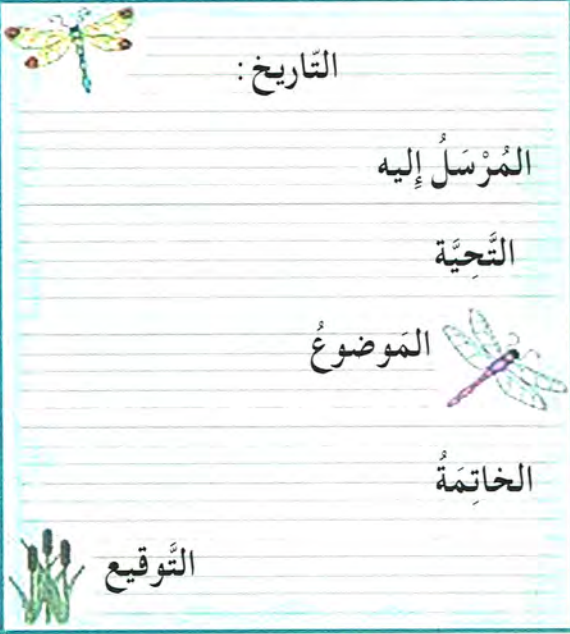 التّاريخ :
المُرْسَلُ إِليه
التَّحِيَّة
المَوضوعُ
الخاتِمَةُ
التَّوقيع